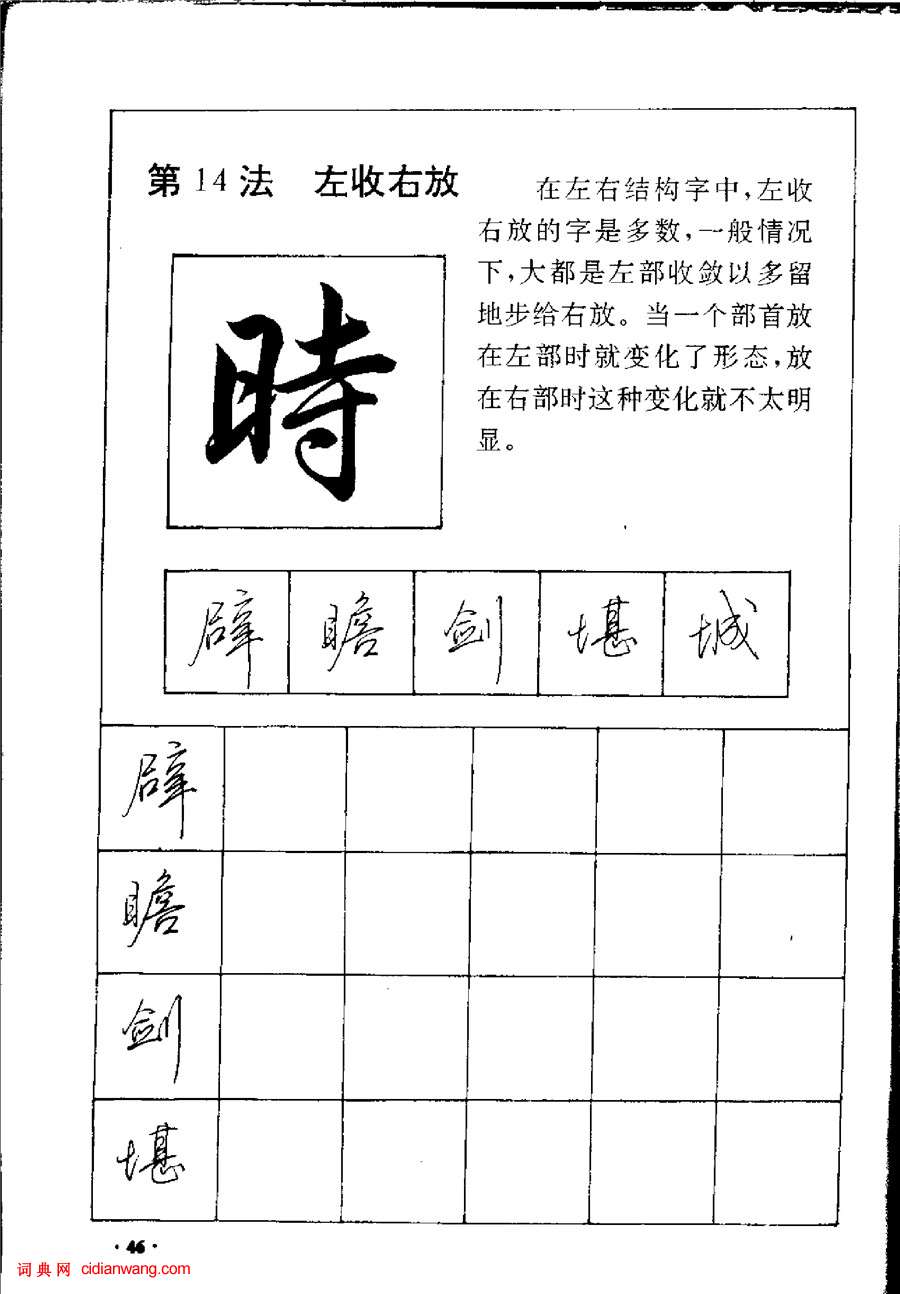 第14法 左收右放
在左右结构字中,左收
右放的字是多数,一般情况
下,大都是左部收敛以多留
地步给右放。当一个部首放
在左部时就变化了形态,放
在右部时这种变化就不太明
显。
時
辟 瞻 剑 堪 城
辟
瞻
剑
堪
·46·
词典网 cidianwang.com